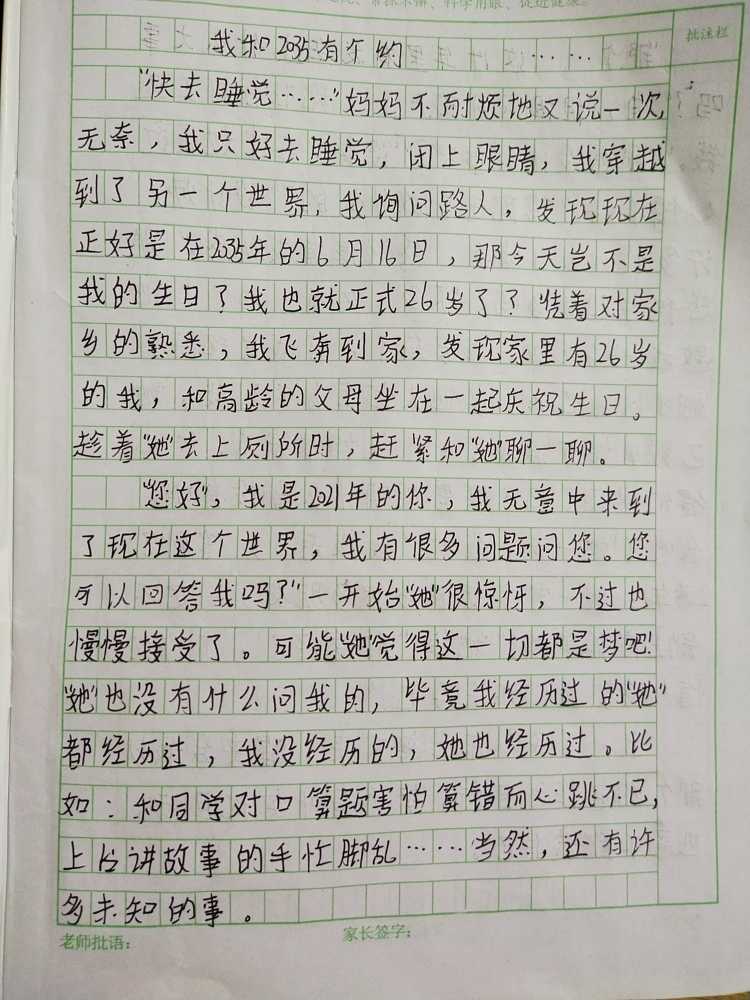 我和2035有个约
批注栏
"快去睡觉……"妈妈不耐烦地又说一次,
无奈，我只好去睡觉，闭上眼睛，我穿越
到了另一个世界，我询问路人，发现现在
正好是在2035年的6月16日，那今天岂不是
我的生日？我也就正式26岁了？凭着对家
乡的熟悉，我飞奔到家，发现家里有26岁
的我，和高龄的父母坐在一起庆祝生日。
趁着"她"去上厕所时，赶紧和"她"聊一聊。
"您好"，我是2021年的你，我无意中来到
了现在这个世界，我有很多问题问您。您
可以回答我吗？"一开始"她"很惊讶，不过也
慢慢接受了。可能"她"觉得这一切都是梦吧!
"她"也没有什么问我的，毕竟我经历过的"她"
都经历过，我没经历的，她也经历过。比
如：和同学对口算题害怕算错而心跳不已,
上台讲故事的手忙脚乱……当然，还有许
多未知的事。
老师批语：
家长签字：